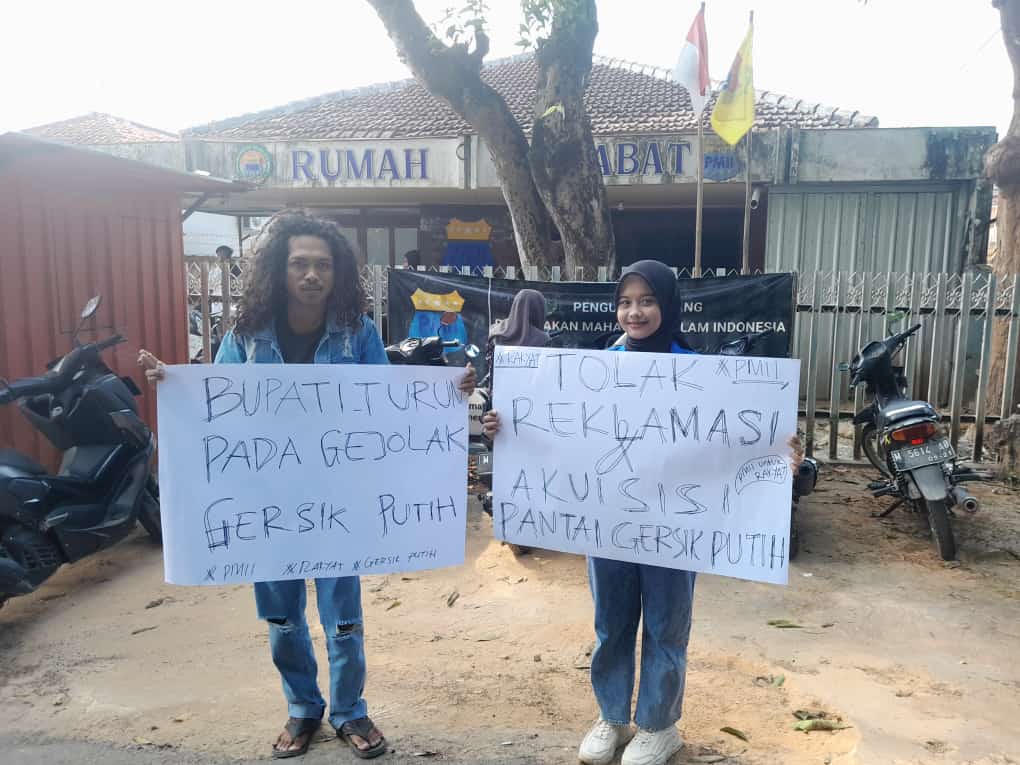 RUMAH
ABAT
PMII
PENGU
NG
AKAN MAHA
LAM INDONESIA
BUPATI TURUN
PADA GEJOLAK
GERSIK PUTIH
#PMII #RAKYAT #GERSIK PUTIH
#RAKYAT
TOLAK #PMII,
REKLAMASI
&
AKUISISI
PMII UNTUK
RAKYAT
PANTAI GERSIK PUTIH